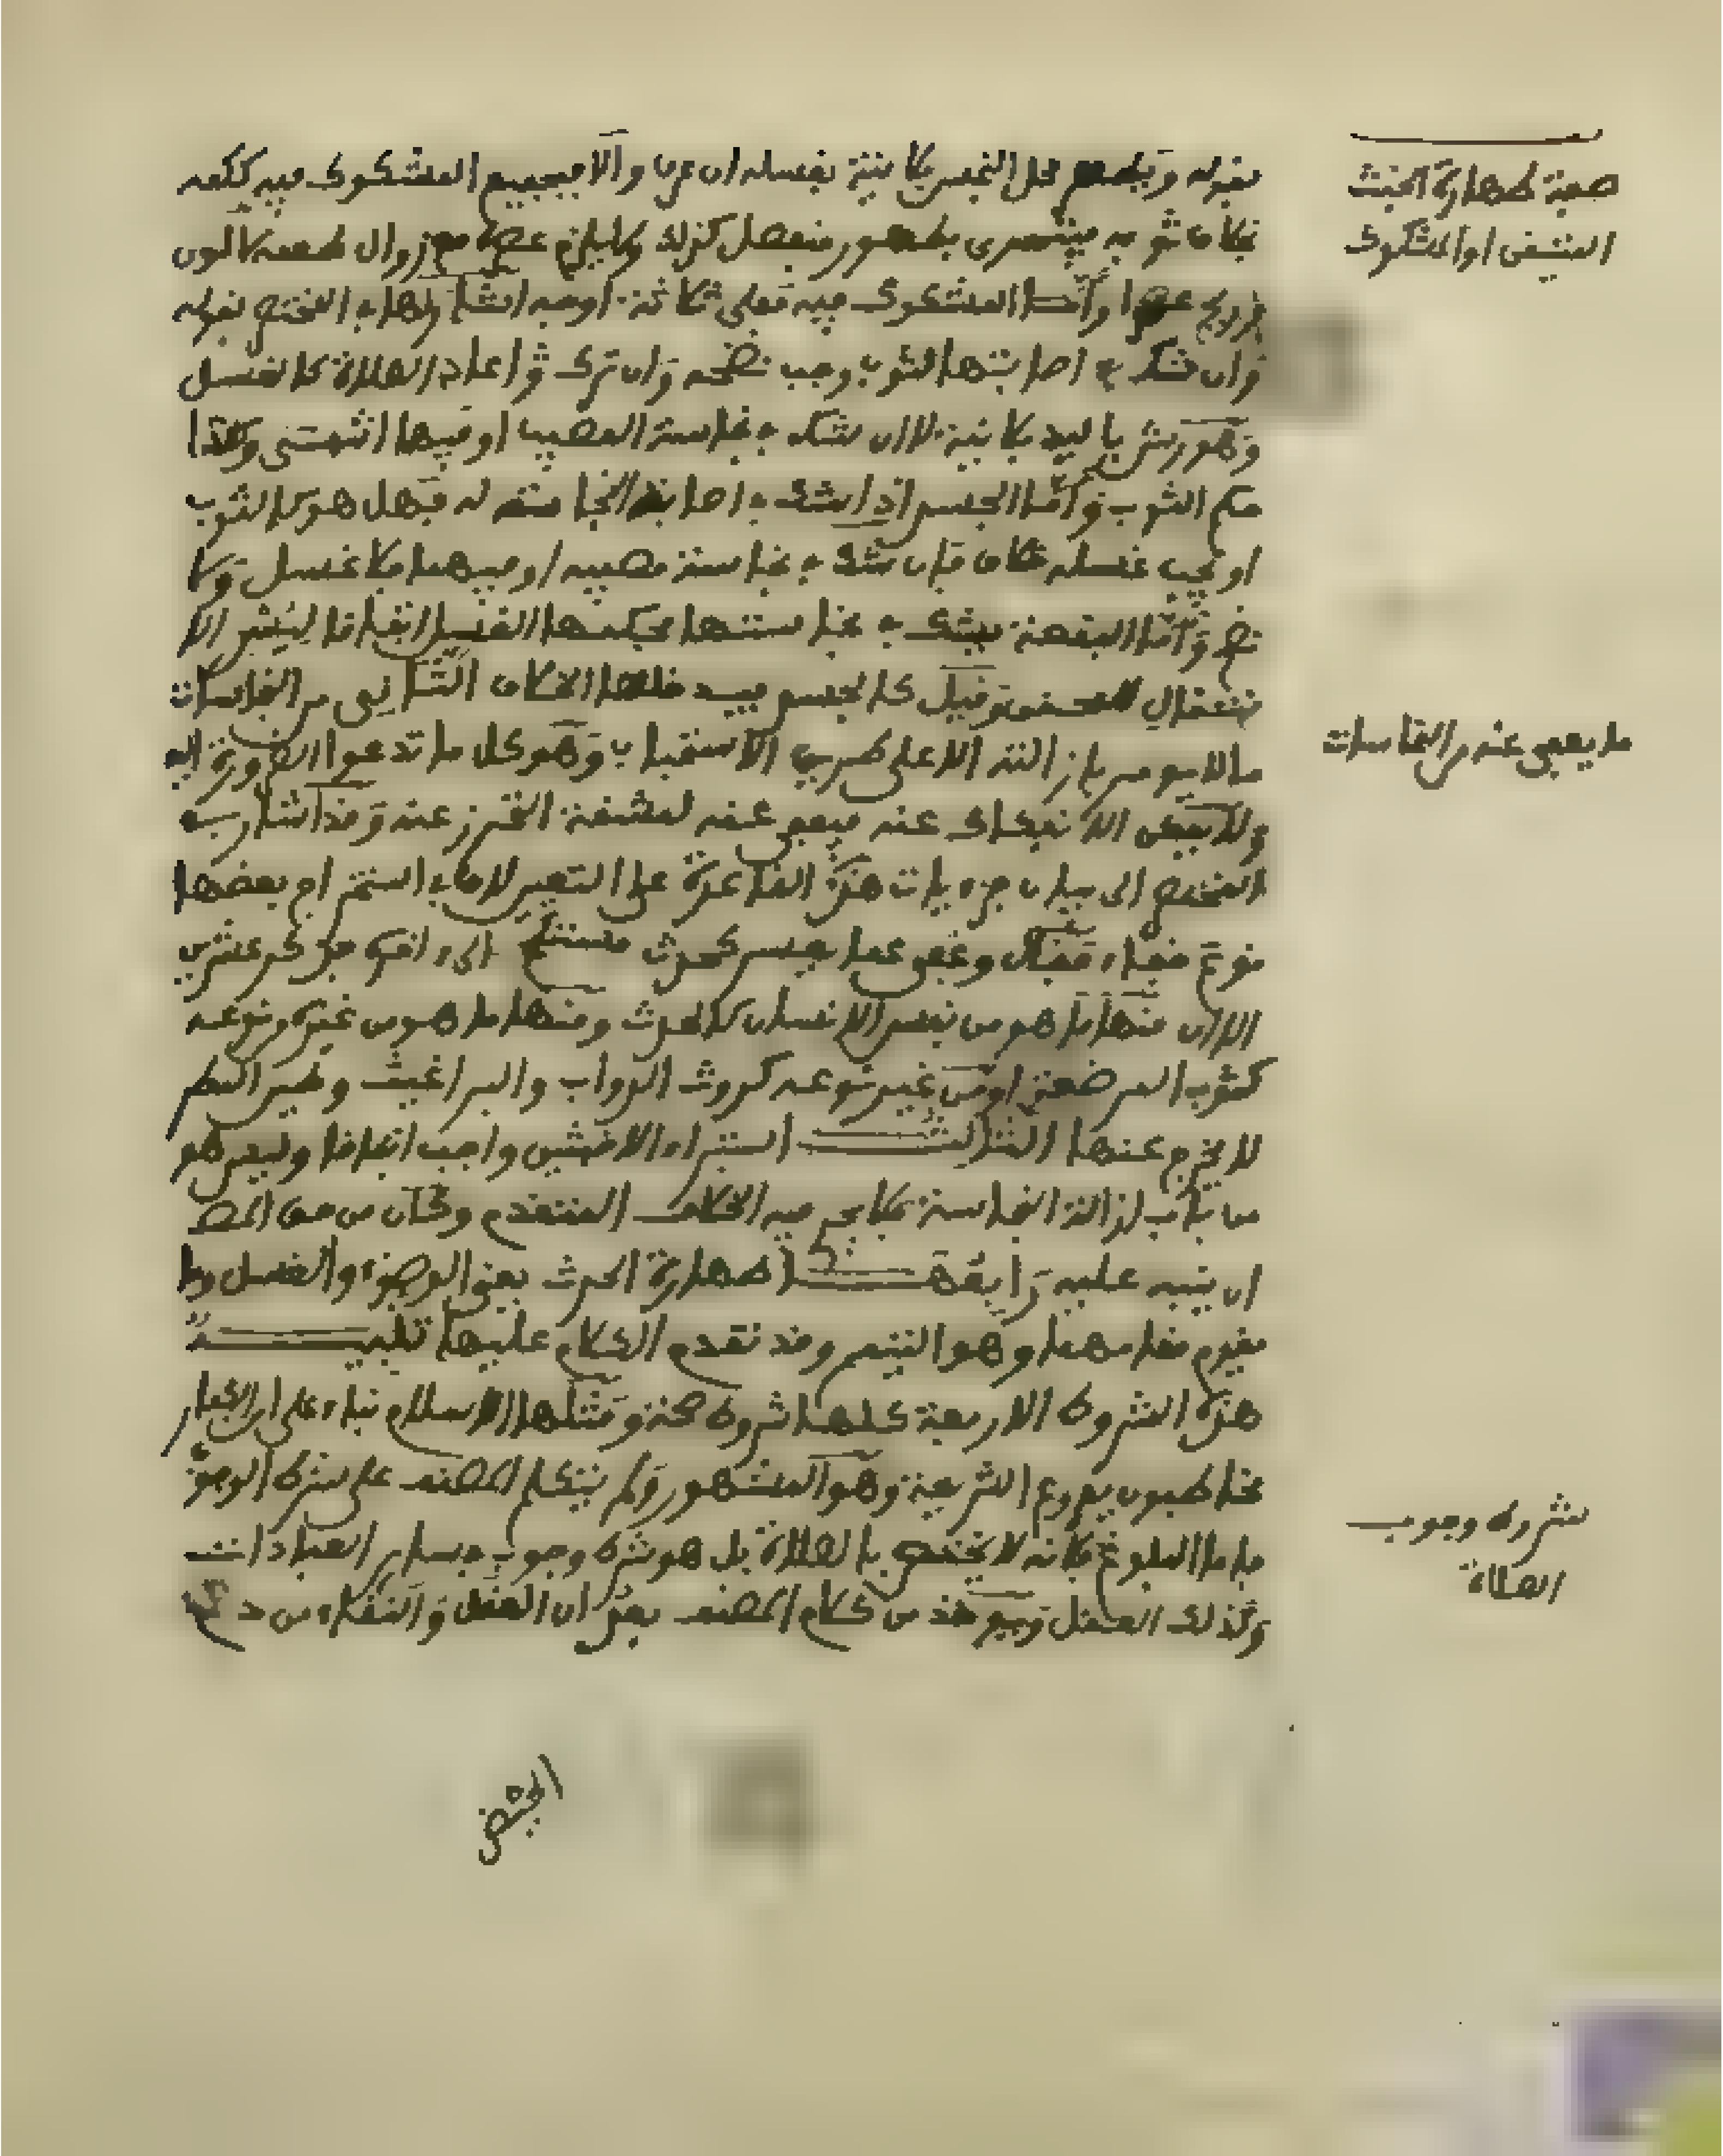 صفة طهارة الخبث
المتيقن او المشكوك
بقوله ويطهر محل النجس بلا نية بغسله ان عرف والا فبجميع المشكوك فيه ككميه
بخلاف ثوبيه فيتحرى بطهور منفصل كذلك ولا يلزم عصره مع زوال طعمه لا لون
وريح عسرا وأما المشكوك فيه فعلى ثلاثة اوجه اشار لها في المختصر بقوله
وان شك في اصابتها لثوب وجب نضحه وان ترك اعاد الصلاة كالغسل
وهو رش باليد بلا نية لا ان شك في نجاسة المصيب او فيهما انتهى وهذا
حكم الثوب وأما الجسد اذا شك في اصابة النجاسة له فهل هو كالثوب
او يجب غسله خلاف فإن شك في نجاسة مصيبه او فيهما فلا غسل ولا
نضح وأما البقعة يشك في نجاستها فحكمها الغسل اتفاقا ليسر الا
نتقال وقيل كالجسد فيدخلها الخلاف الثاني من النجاسات
ما يعفى عنه من النجاسات
ما لا يومر بإزالته الا على طريق الاستحباب وهو كل ما تدعوا الضرورة اليه
ولا يمكن الانفكاك عنه فيعفى عنه لمشقة التحرز عنه وقد اشار
المختصر الى بيان جزءيات هذه القاعدة على التعيين لان في استخراج بعضها
نوع خفاء فقال وعفي عما يعسر كحدث مستنكح الى ءاخره فذكر عشرين
الا ان منها ما هو من نفس الانسان كالحدث ومنها ما هو من غيره ونوعه
كثوب المرضعة او من غير نوعه كروث الدواب والبراغيث وطين المطر
لا يخرج عنها الثالث استبراء الاخبثين واجب اتفاقا وليس هو
من باب ازالة النجاسة فلا يجري فيه الخلاف المتقدم وكان من حق المص
ان ينبه عليه رابعها طهارة الحدث يعني الوضوء والغسل وما
يقوم مقامهما وهو التيمم وقد تقدم الكلام عليها تنبيه
هذه الشروط الاربعة كلها شروط صحة ومثلها الاسلام بناء على ان الكفار
مخاطبون بفروع الشريعة وهو المشهور ولم يتكلم المصنف على شرط الوجوب
شروط وجوب
الصلاة
فاما البلوغ فلانه لا يختص بالصلاة بل هو شرط وجوب في ساير العبادات
وكذلك العقل ويوخذ من كلام المصنف يعني ان العقل والنقاء من دم
الحيض